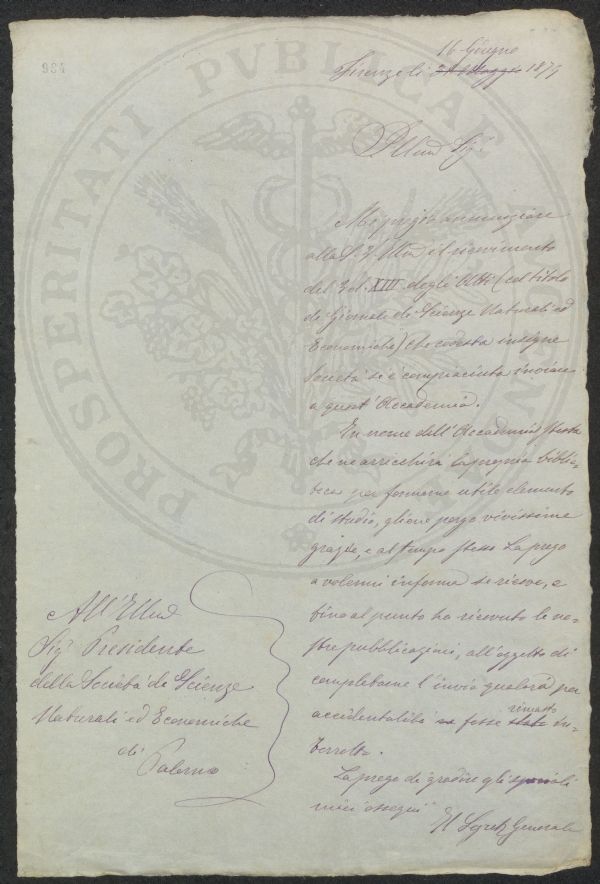 984
16 Giugno
Firenze li 31 Maggio 1879
Illmo Sigr
Mi pregio annunziare
alla S. V. Illma il ricevimento
del Vol. XIII degli Atti (col titolo
di Giornale di Scienze Naturali ed
Economiche) che codesta insigne
Società si è compiaciuta inviare
a quest'Accademia.
In nome dell'Accademia stessa
che ne arricchirà la propria biblio-
teca per formarne utile elemento
di studio, gliene porgo vivissime
grazie, e al tempo stesso La prego
a volermi informare se riceve, e
fino al punto ha ricevuto le no-
stre pubblicazioni, all'oggetto di
completarne l'invio qualora per
accidentalità fosse stato rimasto in-
terrotto.
La prego di gradire gli speciali
miei ossequi
Il Segreto Generale
All'Illmo
Sigr Presidente
della Società di Scienze
Naturali ed Economiche
di
Palermo
PROSPERITATI PVBLICAE